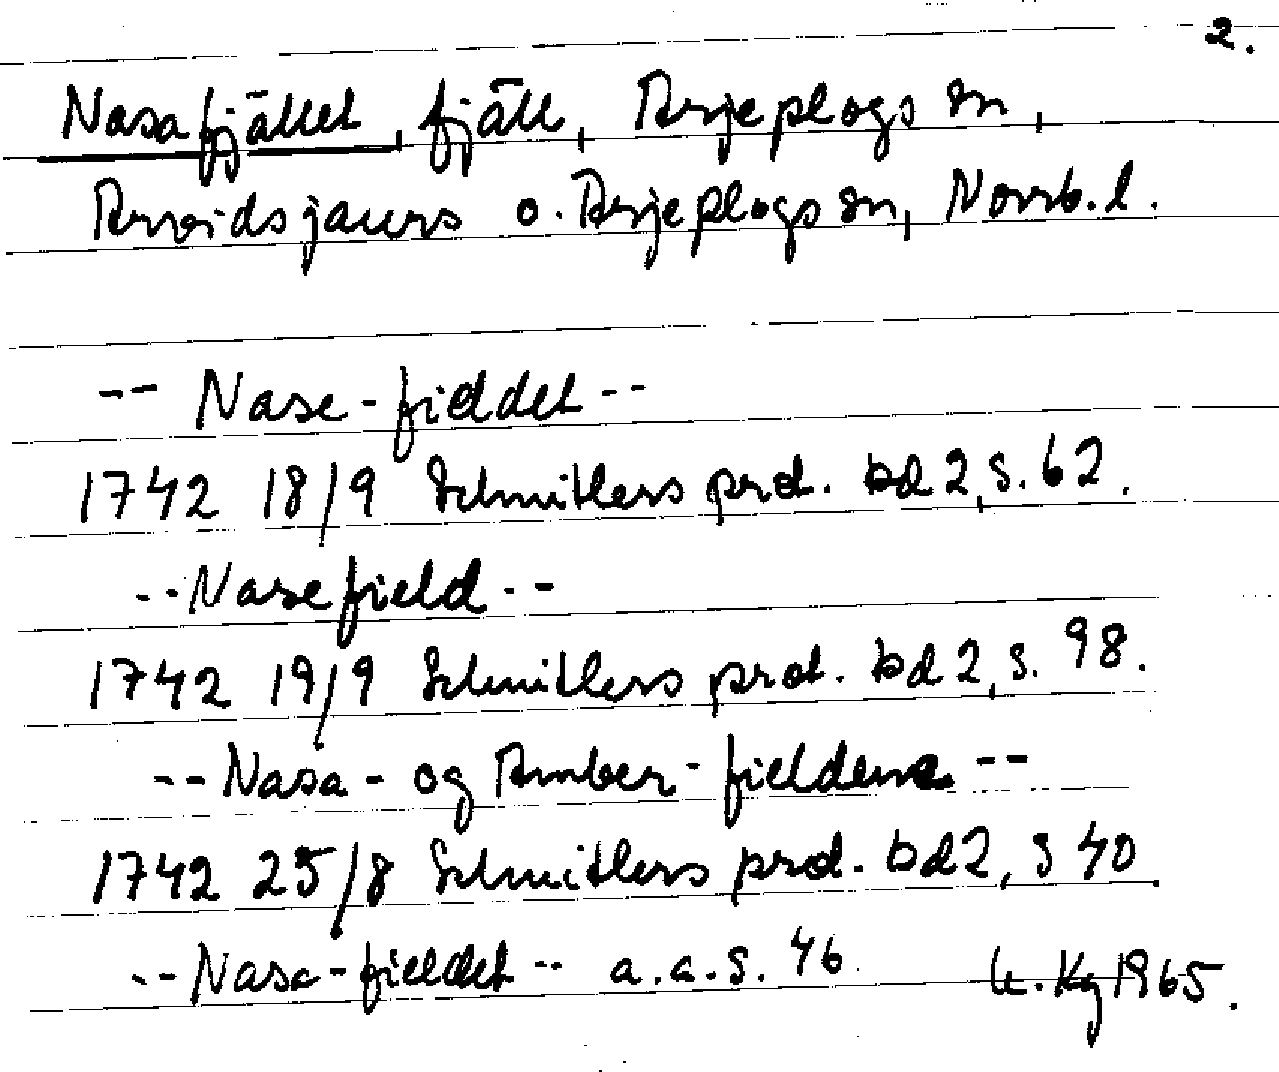 2.
Nasafjället, fjäll, Arjeplogs sn,
Arvidsjaurs o. Arjeplogs sn, Norrb. l.
-- Nase-fieldet --
1742 18/9 Schnitlers prot. bd 2, s. 62.
-- Nasefield --
1742 19/9 Schnitlers prot. bd 2, s. 98.
-- Nasa- og Amber-fieldene --
1742 25/8 Schnitlers prot. bd 2, s 40.
-- Nasa-fieldet -- a.a.s. 46. Kg 1965.